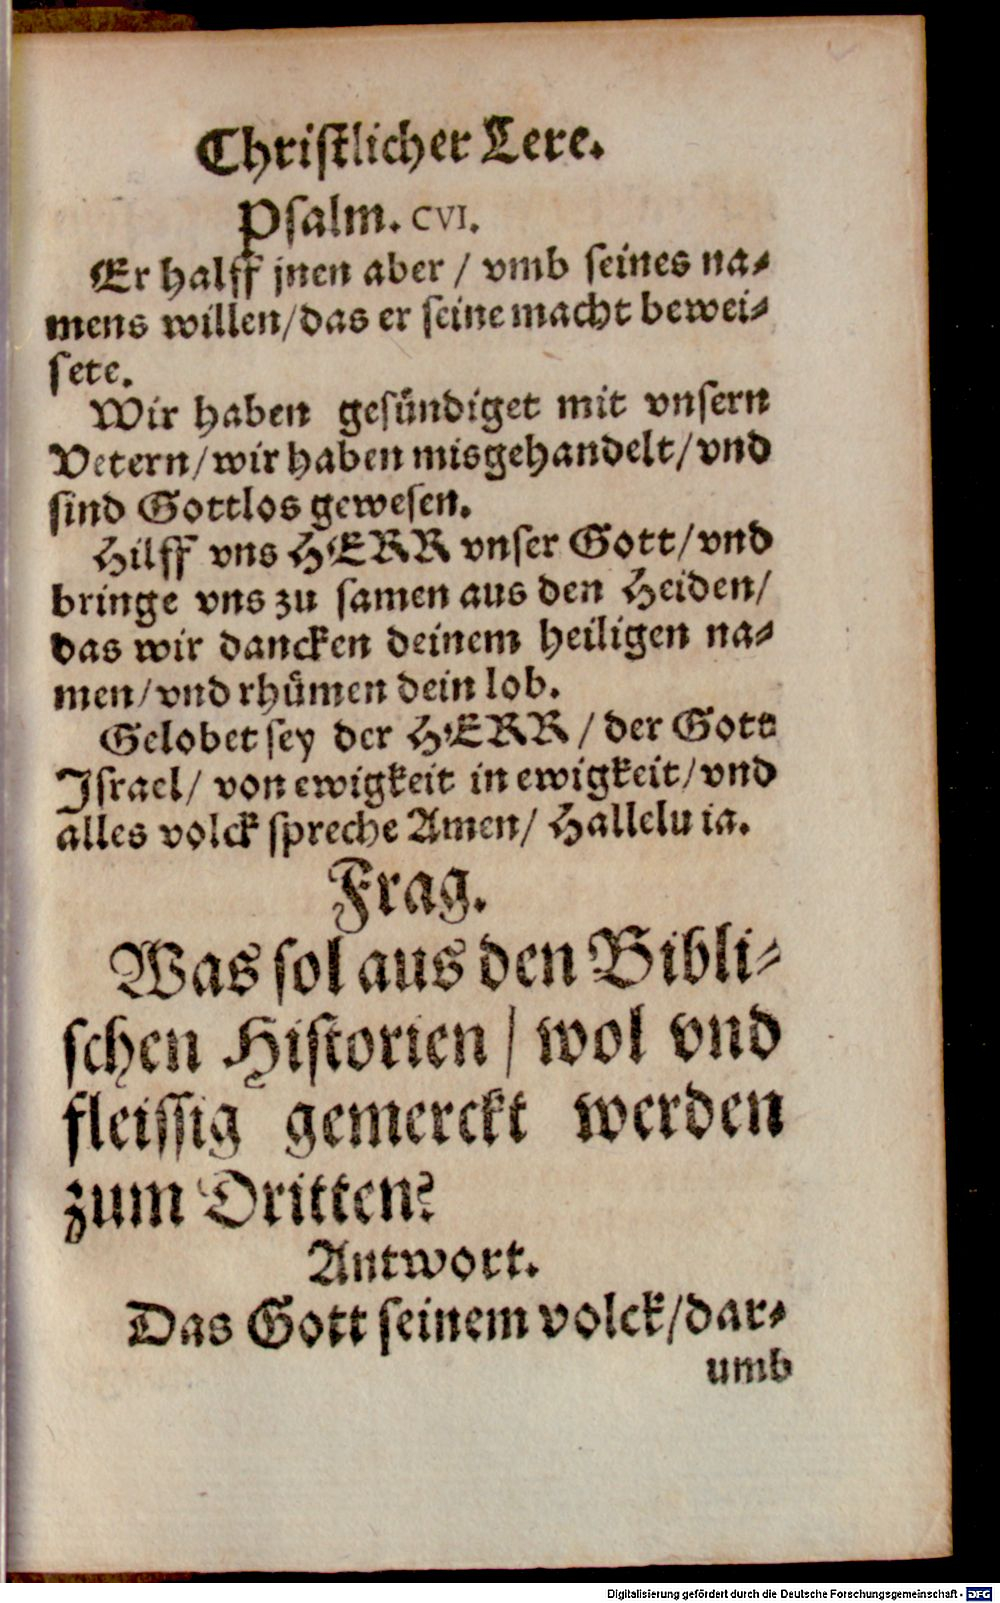 Christlicher Lere.
Psalm. CVI.
Er halff jnen aber / vmb seines na⸗
mens willen/das er seine macht bewei⸗
sete.
Wir haben gesündiget mit vnsern
Vetern/wir haben misgehandelt/vnd
sind Gottlos gewesen.
Hilff vns HERR vnser Gott/vnd
bringe vns zu samen aus den Heiden/
das wir dancken deinem heiligen na⸗
men/vnd rhümen dein lob.
Gelobet sey der HERR / der Gott
Israel/ von ewigkeit in ewigkeit/vnd
alles volck spreche Amen/ Hallelu ia.
Frag.
Was sol aus den Bibli⸗
schen Historien / wol vnd
fleissig gemerckt werden
zum Dritten?
Antwort.
Das Gott seinem volck/dar⸗
umb
Digitalisierung gefördert durch die Deutsche Forschungsgemeinschaft - DFG